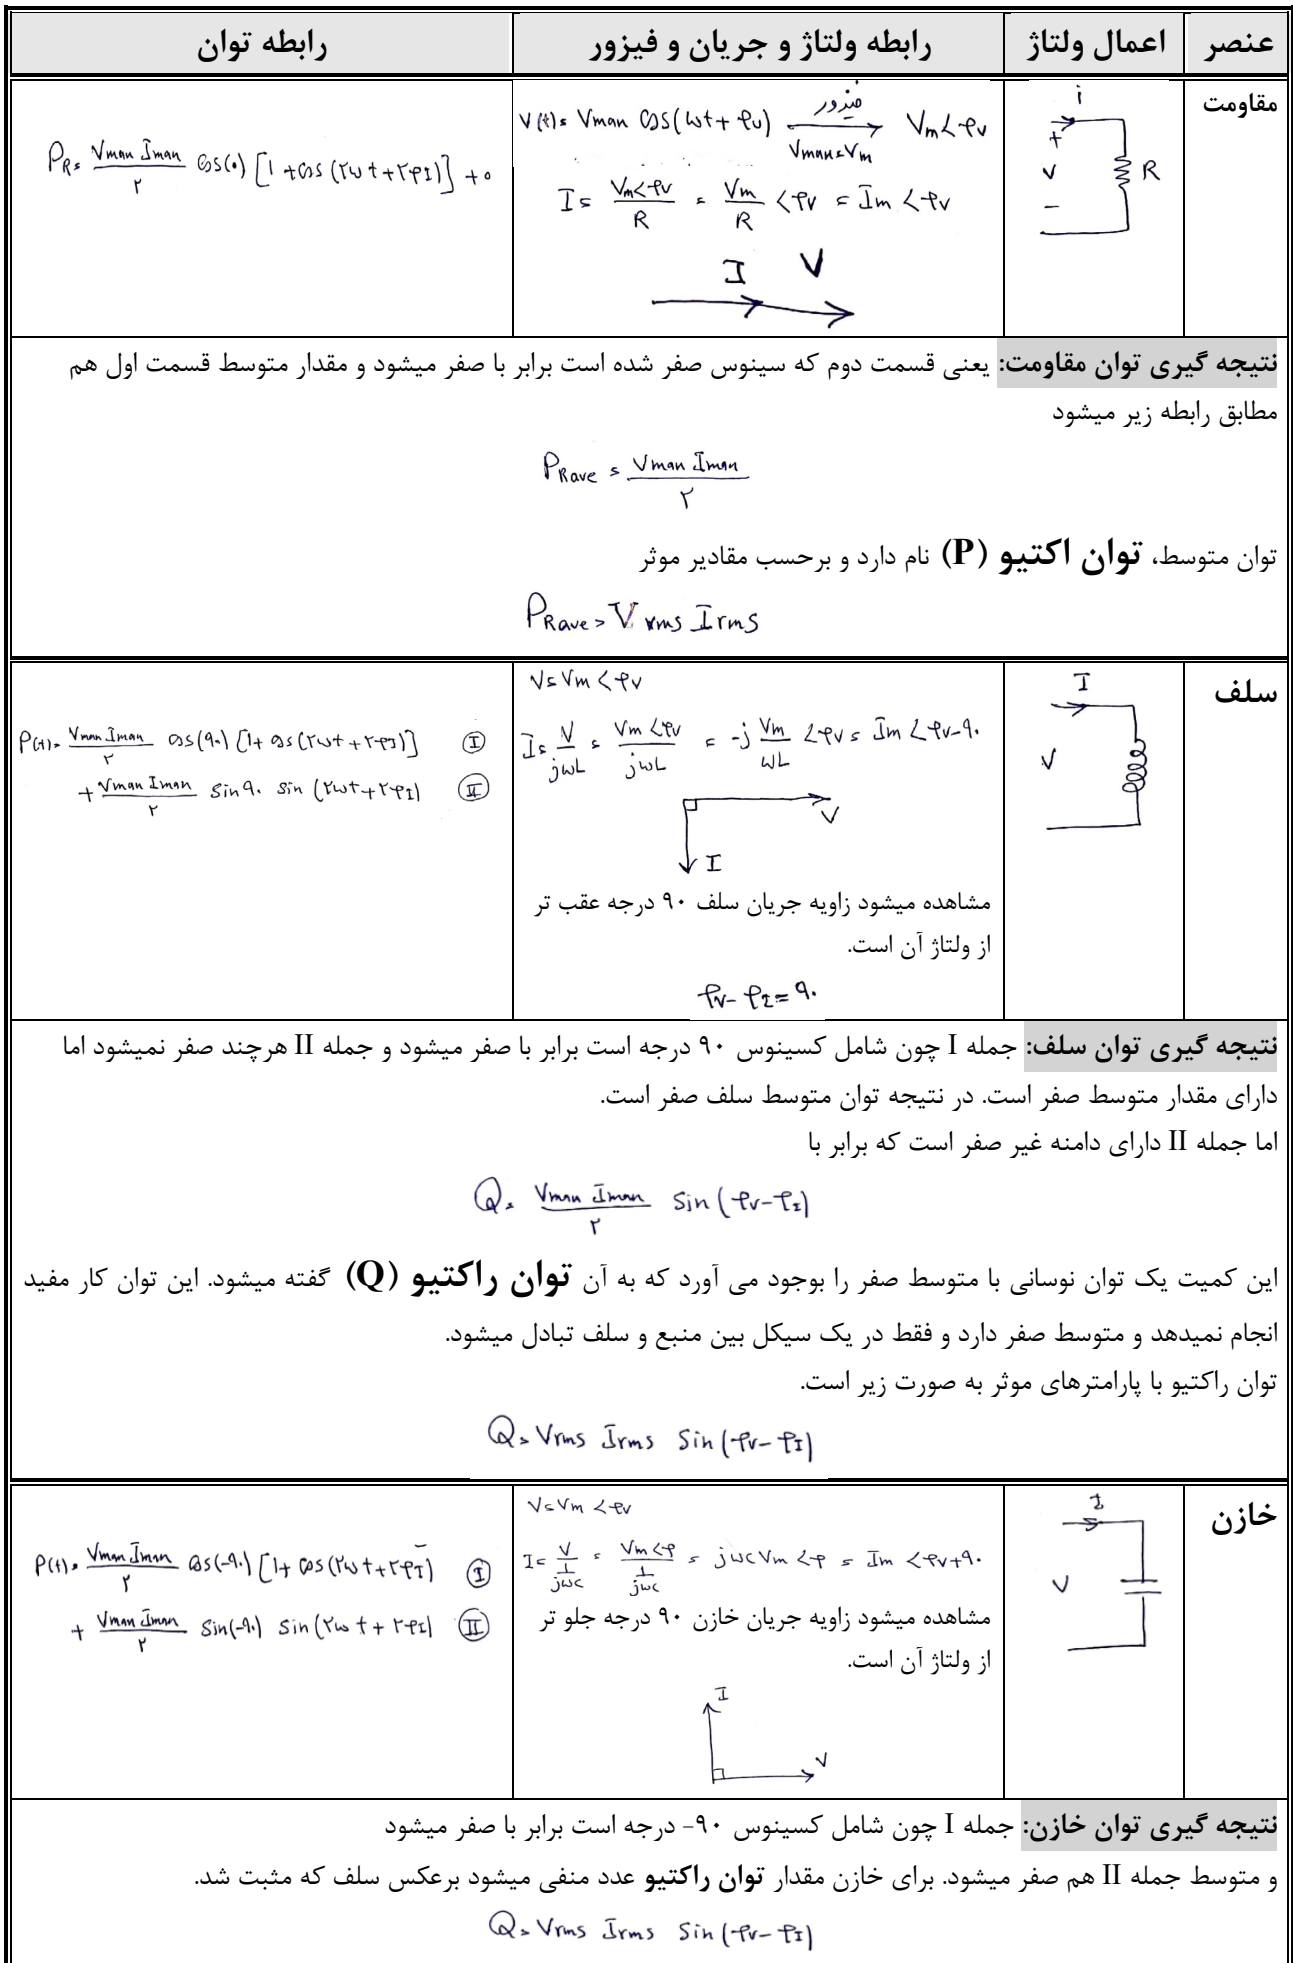 عنصر	اعمال ولتاژ	رابطه ولتاژ و جریان و فیزور	رابطه توان
مقاومت
i
+
V
−
R
V(t) = Vmax Cos(ωt + φv) فیزور Vmax=Vm Vm∠φv
I = Vm∠φv / R = Vm / R ∠φv = Im∠φv
I V
PR = Vmax Imax / ۲ Cos(۰) [1 + Cos(۲ωt + ۲φI)] + ۰
نتیجه گیری توان مقاومت: یعنی قسمت دوم که سینوس صفر شده است برابر با صفر میشود و مقدار متوسط قسمت اول هم
مطابق رابطه زیر میشود
PRave = Vmax Imax / ۲
توان متوسط، توان اکتیو (P) نام دارد و برحسب مقادیر موثر
PRave = Vrms Irms
سلف
I
V
V = Vm∠φv
I = V / jωL = Vm∠φv / jωL = -j Vm / ωL ∠φv = Im∠φv-۹۰
V
I
مشاهده میشود زاویه جریان سلف ۹۰ درجه عقب تر
از ولتاژ آن است.
φv - φI = ۹۰
P(t) = Vmax Imax / ۲ Cos(۹۰) [1 + Cos(۲ωt + ۲φI)] I
+ Vmax Imax / ۲ Sin ۹۰ Sin (۲ωt + ۲φI) II
نتیجه گیری توان سلف: جمله I چون شامل کسینوس ۹۰ درجه است برابر با صفر میشود و جمله II هرچند صفر نمیشود اما
دارای مقدار متوسط صفر است. در نتیجه توان متوسط سلف صفر است.
اما جمله II دارای دامنه غیر صفر است که برابر با
Q = Vmax Imax / ۲ Sin (φv-φI)
این کمیت یک توان نوسانی با متوسط صفر را بوجود می آورد که به آن توان راکتیو (Q) گفته میشود. این توان کار مفید
انجام نمیدهد و متوسط صفر دارد و فقط در یک سیکل بین منبع و سلف تبادل میشود.
توان راکتیو با پارامترهای موثر به صورت زیر است.
Q = Vrms Irms Sin (φv-φI)
خازن
I
V
V = Vm∠φv
I = V / (1 / jωc) = Vm∠φ / (1 / jωc) = jωc Vm∠φ = Im∠φv+۹۰
مشاهده میشود زاویه جریان خازن ۹۰ درجه جلو تر
از ولتاژ آن است.
I
V
P(t) = Vmax Imax / ۲ Cos(-۹۰) [1 + Cos(۲ωt + ۲φI) I
+ Vmax Imax / ۲ Sin(-۹۰) Sin (۲ωt + ۲φI) II
نتیجه گیری توان خازن: جمله I چون شامل کسینوس ۹۰- درجه است برابر با صفر میشود
و متوسط جمله II هم صفر میشود. برای خازن مقدار توان راکتیو عدد منفی میشود برعکس سلف که مثبت شد.
Q = Vrms Irms Sin (φv-φI)